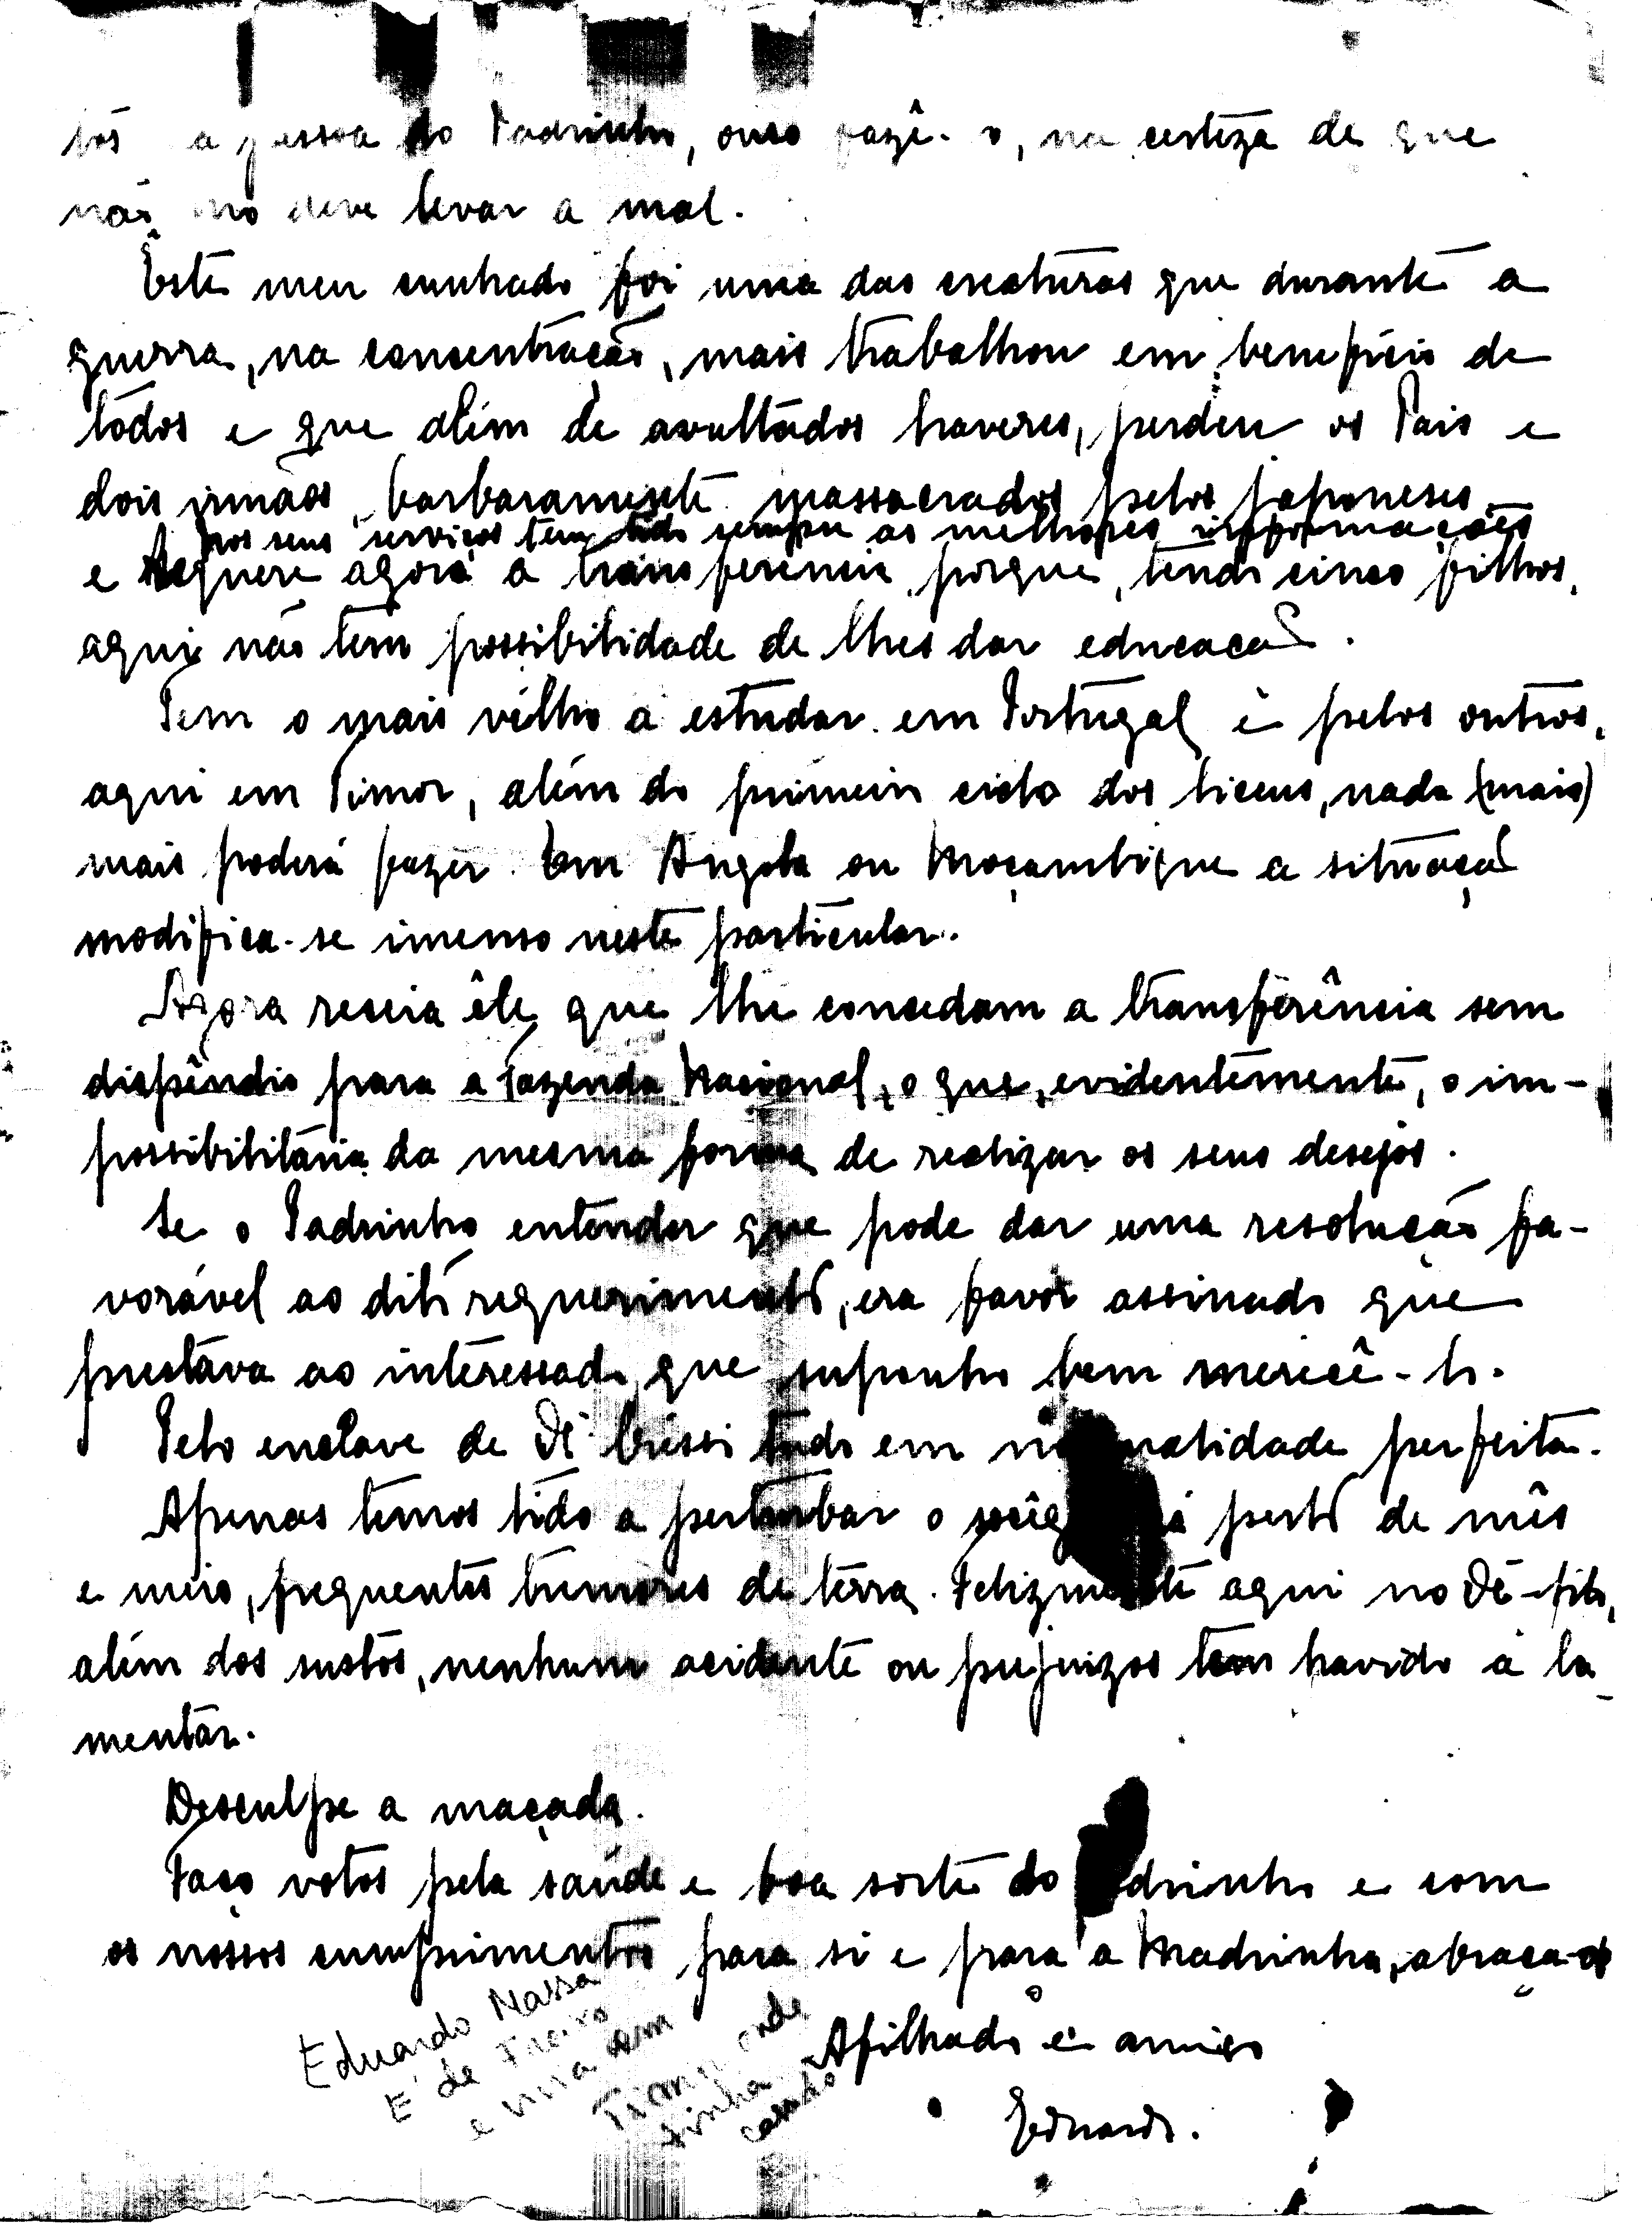 a pessoa do Padrinho, ouso fazê-o, na certeza de que
não mo deve levar a mal.
Êste meu cunhado foi uma das creaturas que durante a
guerra, na concentração, mais trabalhou em beneficio de
todos e que além de avultados haveres, perdeu os Pais e
dois irmãos, barbaramente massacrados pelos japoneses.
nos seus serviços tem tido sempre as melhores informações
e Requere agora a transferencia, porque, tendo cinco filhos,
aqui não tem possibilidade de lhes dar educação.
Tem o mais vélho a estudar em Portugal e pelos outros,
aqui em Timor, além do primeiro ciclo dos liceus, nada (mais)
mais poderá fazer. Em Angola ou Moçambique a situação
modifica-se imenso neste particular.
Agora receia êle, que lhe concedam a transferência sem
dispêndio para a Fazenda Nacional, o que, evidentemente, o im-
possibilitaria da mesma forma de realizar os seus desejos.
Se o Padrinho entender que pode dar uma resolução fa-
vorável ao dito requerimento, era favor assinado que
prestava ao interessado, que suponho bem merecê-lo.
Pelo enclave de Oé-Cússi tudo em normalidade perfeita.
Apenas temos tido a perturbar o há perto de mês
e meio, frequentes tremores de terra. Felizmente aqui no
além dos sustos, nenhum acidente ou prejuizos tem havido a la
mentar.
Desculpe a maçada.
Faço votos pela saúde e boa sorte do Padrinho e com
os nossos cumprimentos para si e para a Madrinha, abraça-o
o
Afilhado e amigo
Eduardo.
Eduardo Massa
E' de
e vivia em
Timor onde
tinha
casado